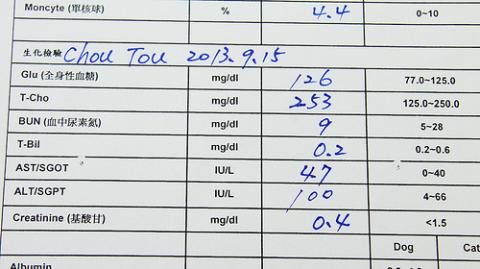 Moncyte (單核球) % 4.4 0~10
生化檢驗 Chou Tou 2013.9.15
Glu (全身性血糖) mg/dl 126 77.0~125.0
T-Cho mg/dl 253 125.0~250.0
BUN (血中尿素氮) mg/dl 9 5~28
T-Bil mg/dl 0.2 0.2~0.6
AST/SGOT IU/L 47 0~40
ALT/SGPT IU/L 100 4~66
Creatinine (基酸甘) mg/dl 0.4 <1.5
Dog Cat
Albumin